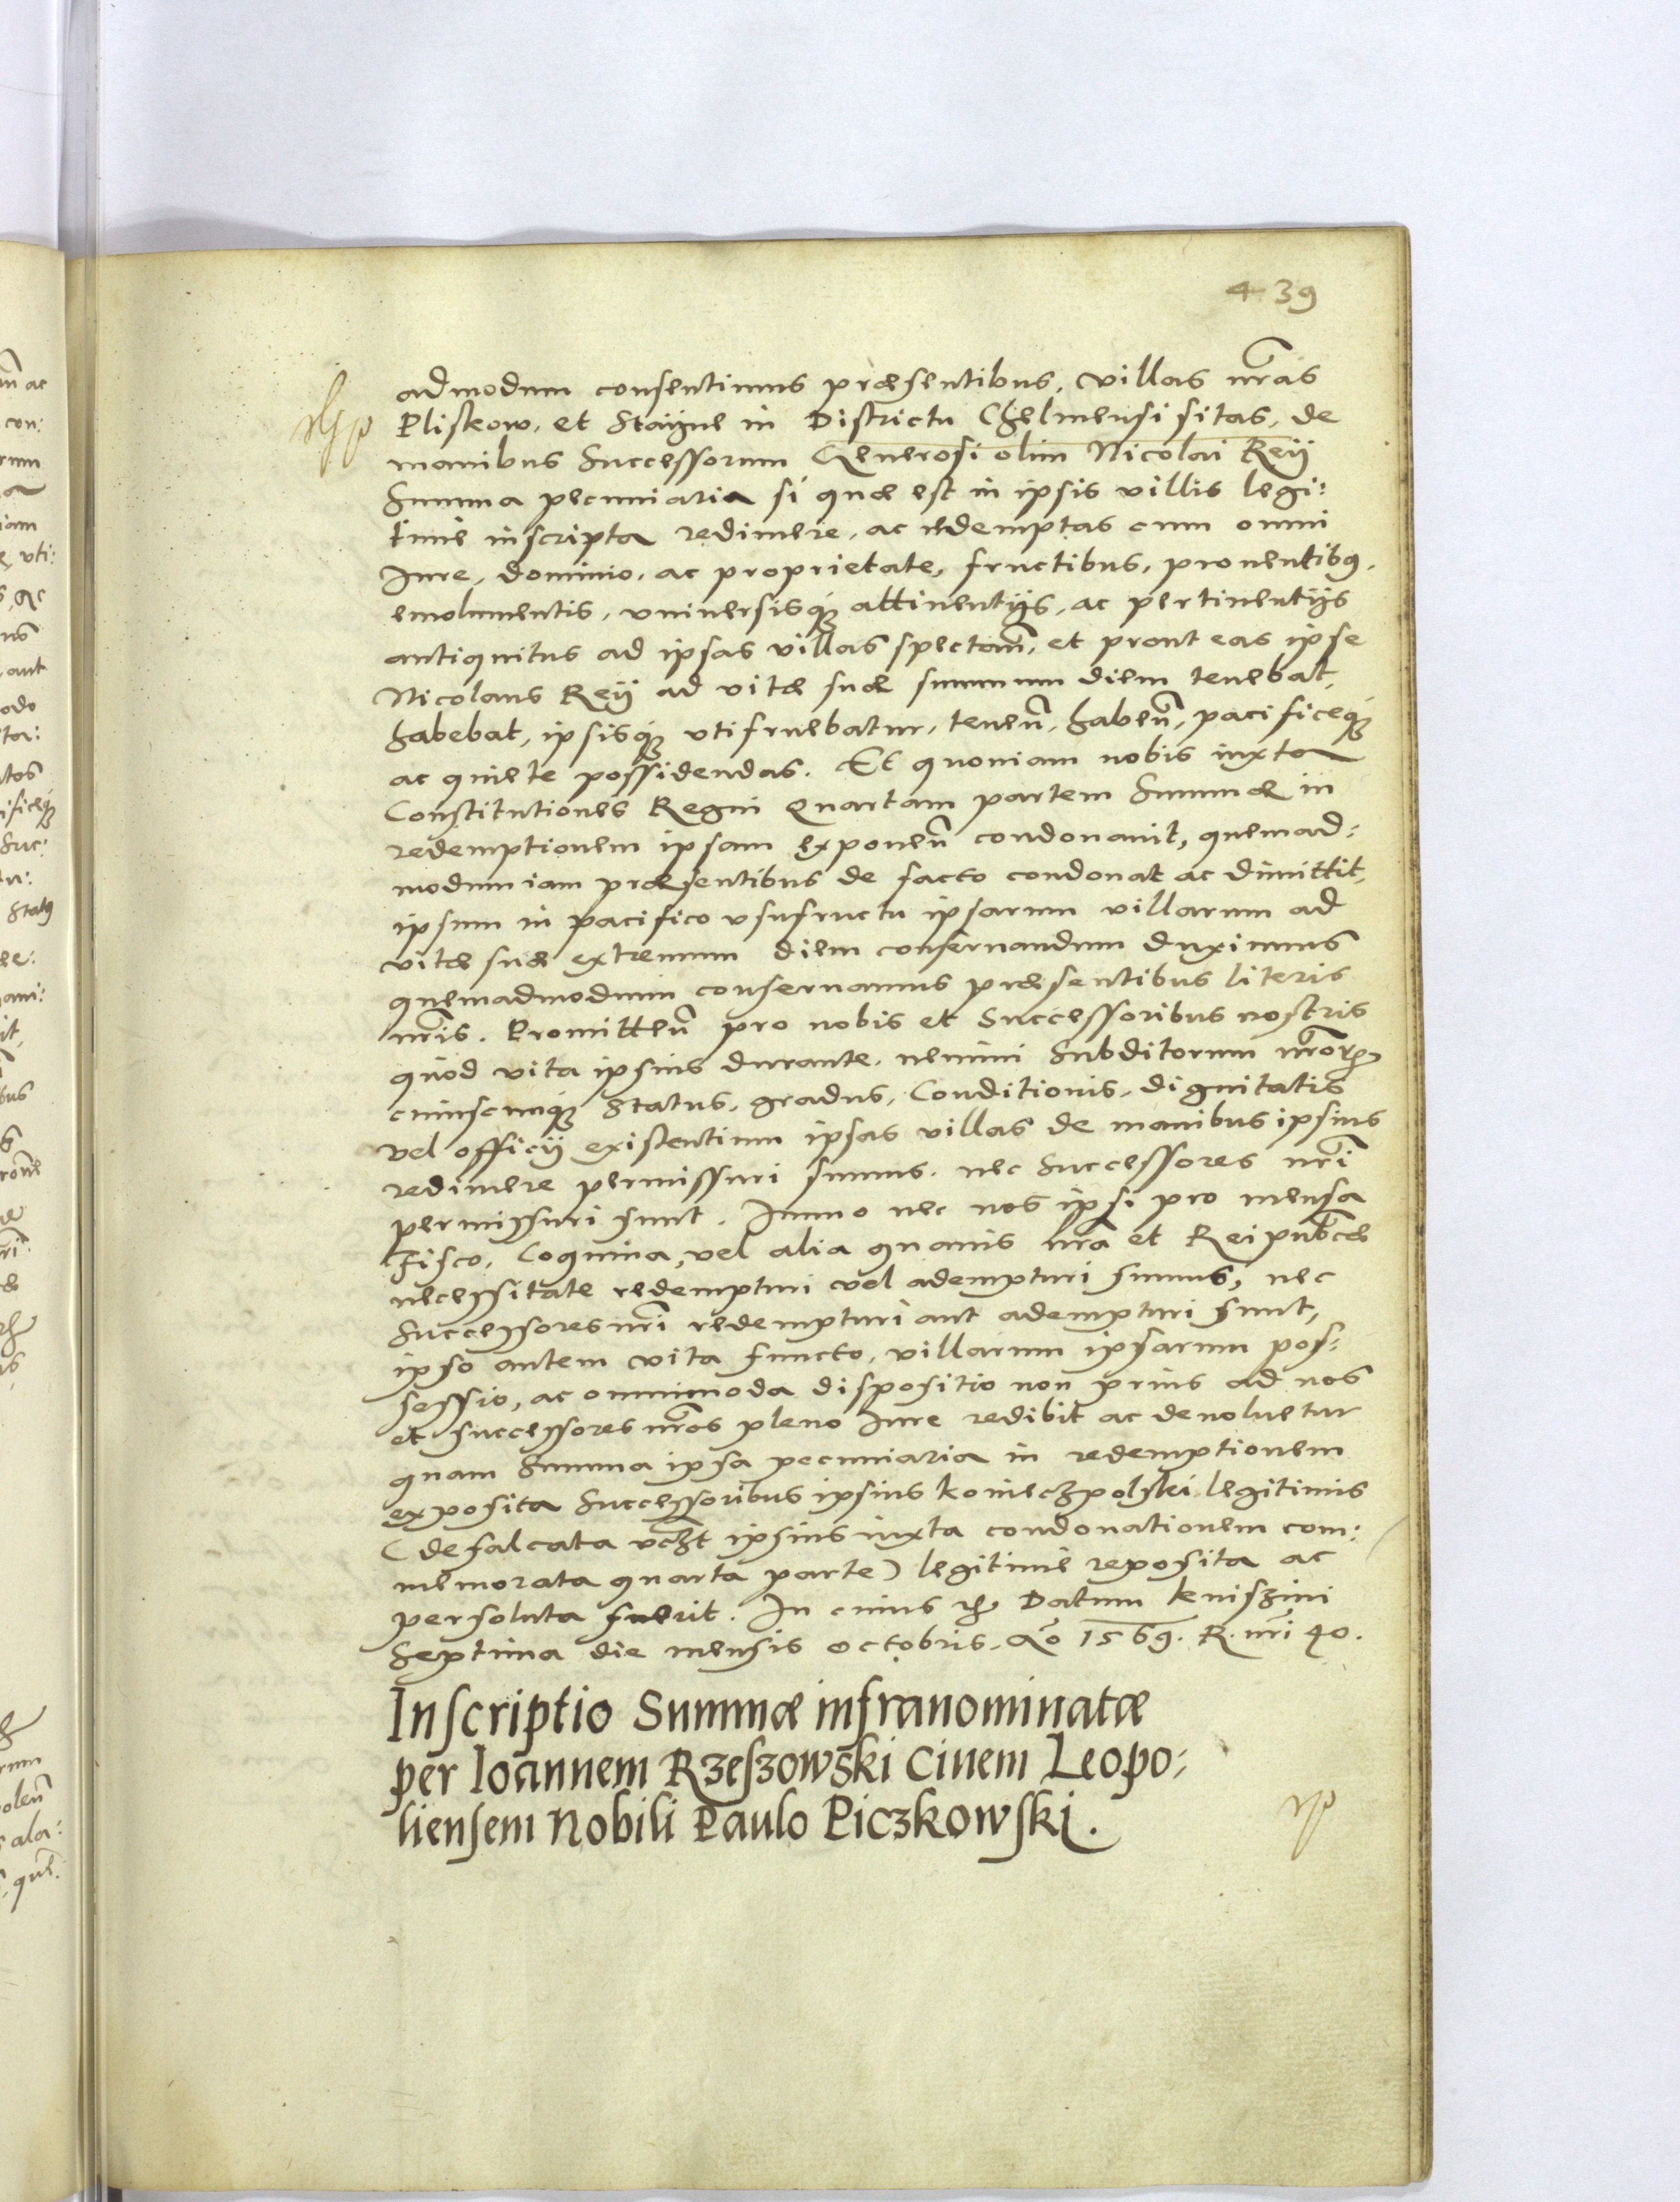 439
admodum consentimus præsentibus, villas nr̃as
Pliskow, et Stayne in Districtu Chelmensi sitas, de
manibus Successorum Generosi olim Nicolai Reÿ
Summa pecuniaria si quæ est in ipsis villis legi:
time inscripta redimere, ac redemptas cum omni
Iure, dominio, ac proprietate, fructibus, prouentibꝰ,
emolumentis, vniuersisqꝫ attinentijs, ac pertinentijs
antiquitus ad ipsas villas spectan̄, et prout eas ipse
Nicolaus Reÿ ad vitæ suæ summum diem tenebat,
habebat, ipsisqꝫ utifruebatur, tenen̄, haben̄, pacificeqꝫ
ac quiete possidendas. Et quoniam nobis iuxta
Constitutiones Regni Quartam partem Summæ in
redemptionem ipsam exponen̄ condonauit, quemad:
modum iam præsentibus de facto condonat ac dimittit,
ipsum in pacifico vsufructu ipsarum villarum ad
vitæ suæ extremum diem conseruandum duximus
quemadmodum conseruamus præsentibus literis
nr̃is. Promitten̄ pro nobis et Successoribus nostris
quod vita ipsius durante, nemini Subditorum nr̃orꝫ
cuiuscunqꝫ Status, gradus, Conditionis, dignitatis
vel officij existentium ipsas villas de manibus ipsius
redimere permissuri sumus, nec Successores nr̃i
permissuri sunt. Immo nec nos ipsi pro mensa
Fisco, Coquina, vel alia quauis nr̃a et Reipub̃cæ
necessitate redempturi vel adempturi sumus, nec
Successores nr̃i redempturi aut adempturi sunt,
ipso autem vita functo, villarum ipsarum pos:
sessio, ac omnimoda dispositio non prius ad nos
et successores nr̃os pleno Iure redibit ac deuoluetur
quam Summa ipsa pecuniaria in redemptionem
exposita Successoribus ipsius Konieczpolski legitimis
(defalcata vcꝫt ipsius iuxta condonationem com:
memorata quarta parte) legitime reposita ac
persoluta fuerit. In cuius rḥ Datum Kniszini
Septima die mensis Octobris, Ao 1569. R. nr̃i 40.
Inscriptio Summæ infranominatæ
per Ioannem Rzeszowski Ciuem Leopo:
liensem Nobili Paulo Piczkowski.